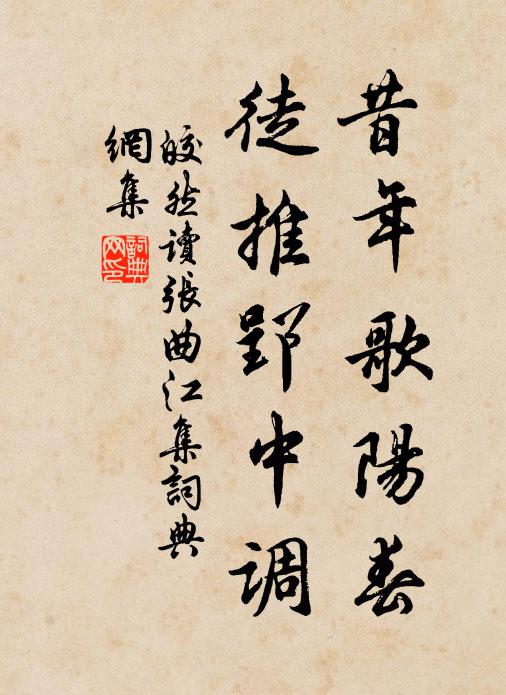 昔年歌陽春
徒推郢中調
皎然讀張曲江集詞典
網集
詞典
网印